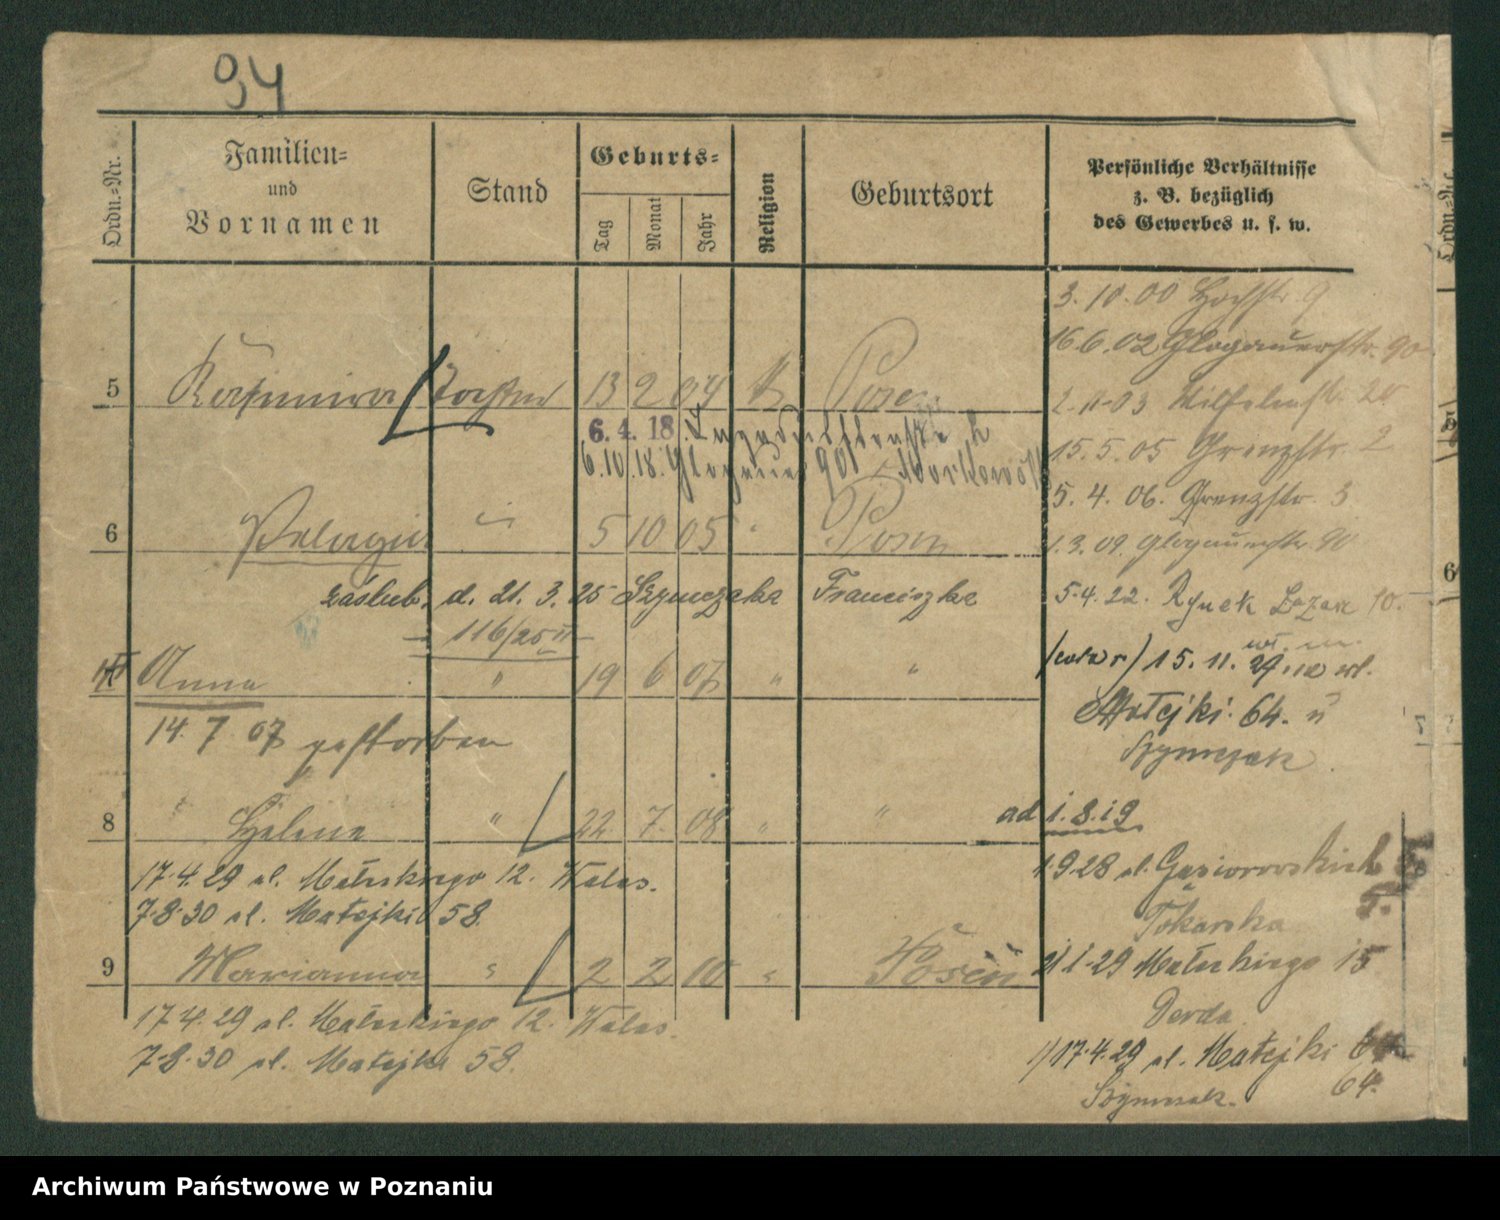 94
Ordn.-Nr.
Familien-
und
Vornamen
Stand
Geburts-
Tag
Monat
Jahr
Religion
Geburtsort
Persönliche Verhältnisse
z. B. bezüglich
des Gewerbes u. s. w.
Ordn.-Nr.
3. 10. 00 Hochstr. 9
16.6.02 Glogauerstr. 90
5 Kasimira Tochter 13 2 04 Posen
2.11.03
6. 4. 18.
15.5.05 Grenzstr. 2
6.10.18. Glogauer 90
5. 4. 06. Grenzstr. 3
6 Pelagia 5 10 05 " Posen
1.3.09. Glogauerstr. 90
6
zaślub. d. 21. 3. 25 Szymczaka Franciszka
5.4.22. Rynek Łazar. 10.
116/25 II
7 Anna " 19 6 07 " "
15. 11. 29.
14. 7 07 gestorben
Matejki 64.
Szymczak
8 Helena " 22 7. 08 " "
ad 1.8.19
17.4.29 ul. Małeckiego 12. Walas.
1.9.28 ul. Gąsiorowskich 5.
7.8.30 ul. Matejki 58.
Tokarska
9 Marianna " 2 2 10 " Posen
21.1.29 Małeckiego 15
17.4.29 ul. Małeckiego 12. Walas.
Derda
7.8.30 ul. Matejki 58.
17.4.29 ul. Matejki
64.
Szymczak.
Archiwum Państwowe w Poznaniu